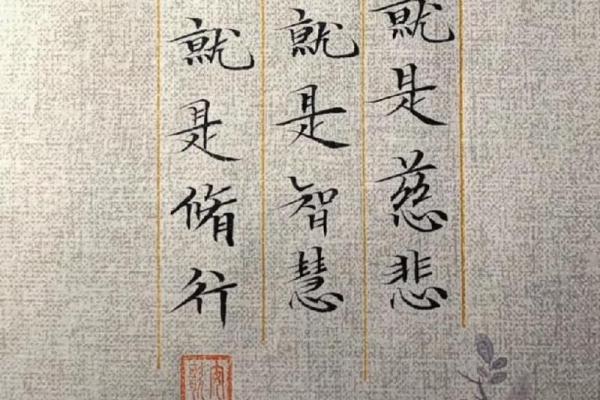 就是慈悲
就是智慧
就是脩行